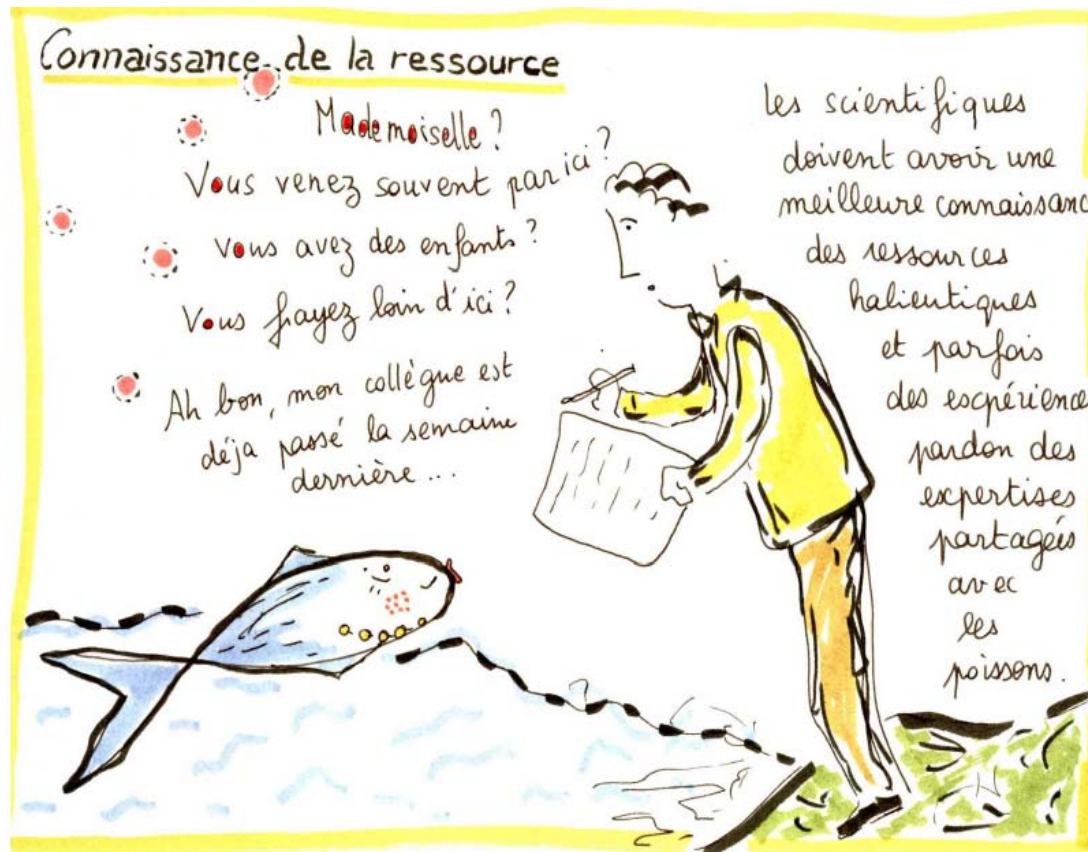 Connaissance de la ressource
Mademoiselle ?
Vous venez souvent par ici ?
Vous avez des enfants ?
Vous frayez loin d'ici ?
Ah bon, mon collègue est
déja passé la semaine
dernière ...
les scientifiques
doivent avoir une
meilleure connaissanc
des ressources
halieutiques
et parfois
des escpérience
pardon des
expertises
partagées
avec
les
poissons.